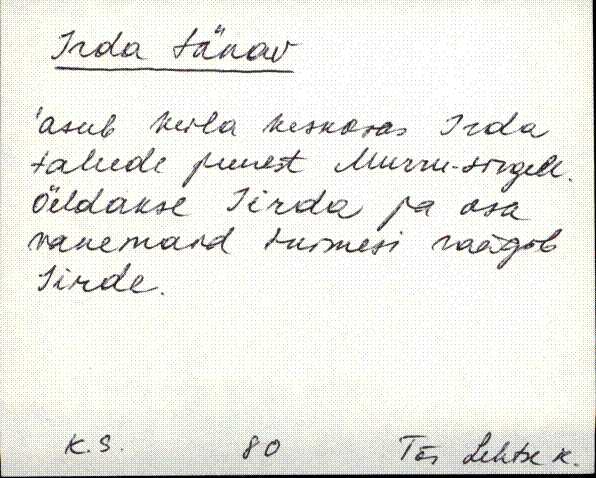 Irda tänav
asub küla keskosas Irda
talude juurest Murru-sirgele.
Öeldakse Iirda ja osa
vanemaid inimesi räägib
Iirde.
K.S. 80 Tõs Lehtse k.